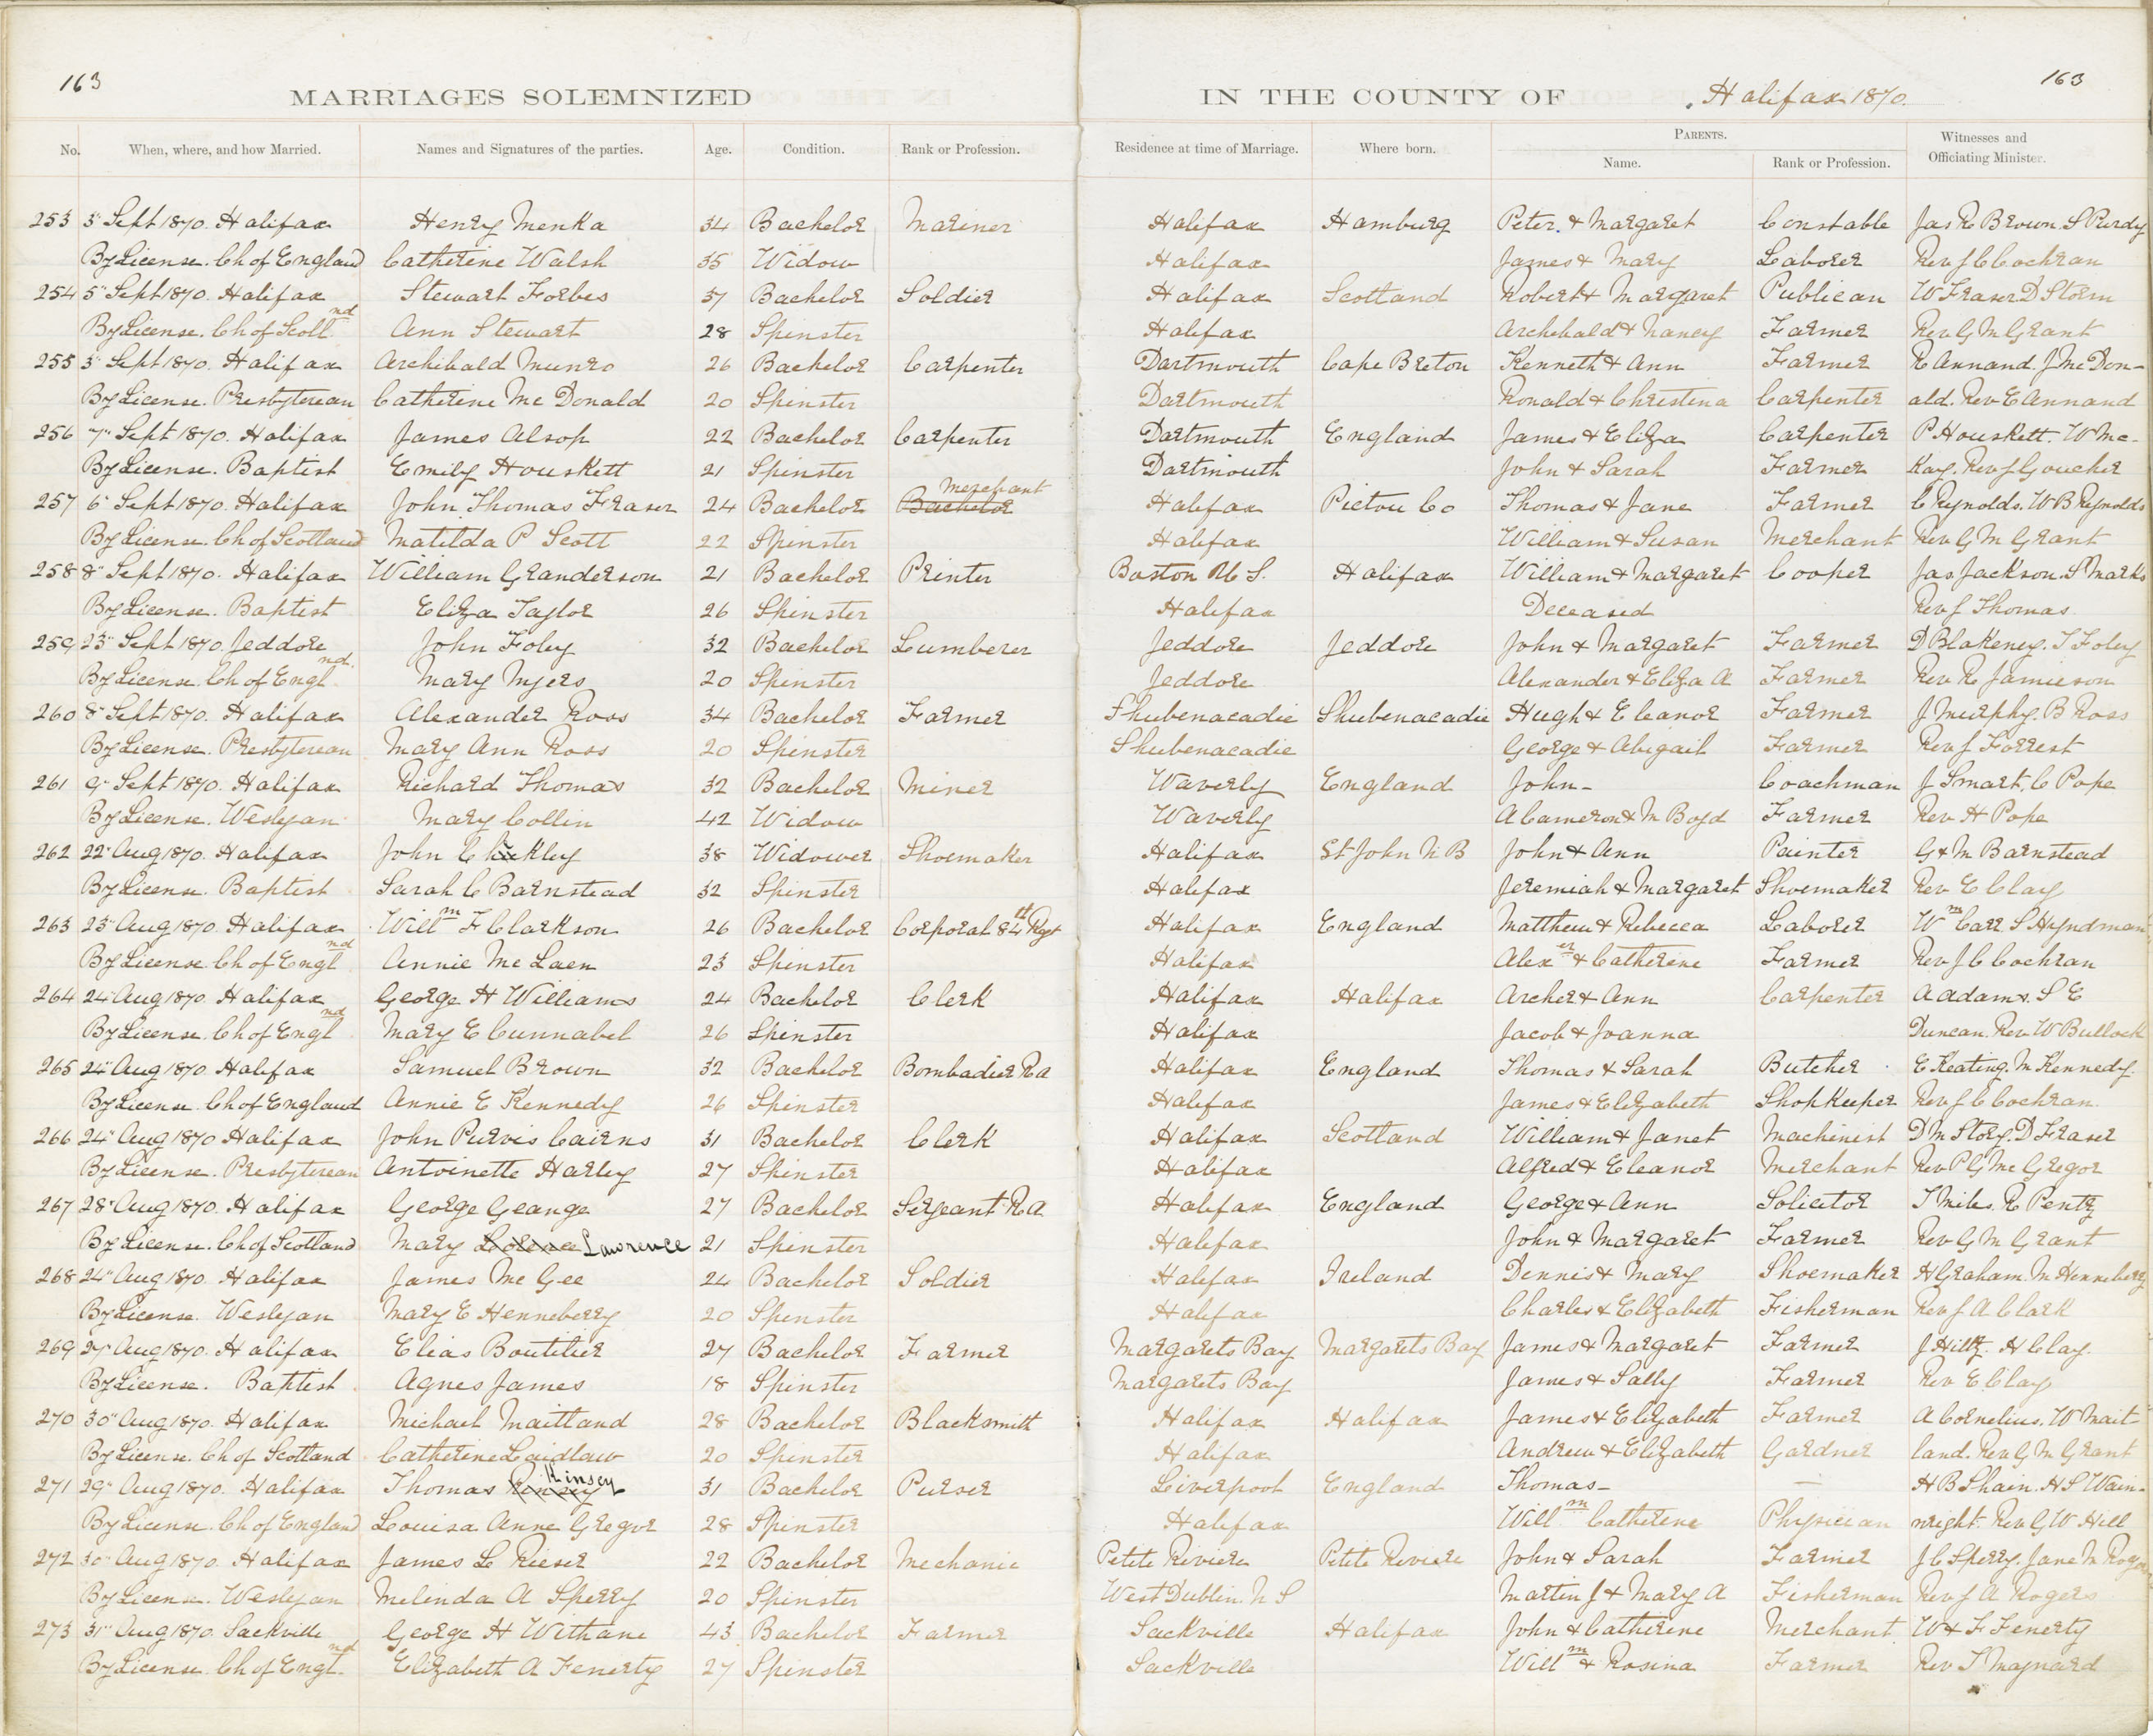 163
163
MARRIAGES SOLEMNIZED IN THE COUNTY OF Halifax 1870.
No. When, where, and how Married. Names and Signatures of the parties. Age. Condition. Rank or Profession. Residence at time of Marriage. Where born. PARENTS. Name. Rank or Profession. Witnesses and Officiating Minister.
253 3" Sept 1870. Halifax Henry Menka 34 Bachelor Mariner Halifax Hamburg Peter & Margaret Constable Jas R Brown. S Purdy
By License. Ch of England Catherine Walsh 35 Widow Halifax James & Mary Laborer Rev J C Cochran
254 5" Sept 1870. Halifax Stewart Forbes 37 Bachelor Soldier Halifax Scotland Robert & Margaret Publican W Fraser D Storm
By License. Ch of Scotl nd Ann Stewart 28 Spinster Halifax Archibald & Nancy Farmer Rev G M Grant
255 3" Sept 1870. Halifax Archibald Munro 26 Bachelor Carpenter Dartmouth Cape Breton Kenneth & Ann Farmer R Annand. J McDon-
By License. Presbyterean Catherine Mc Donald 20 Spinster Dartmouth Ronald & Christena Carpenter ald. Rev E Annand
256 7" Sept 1870. Halifax James Alsop 22 Bachelor Carpenter Dartmouth England James & Eliza Carpenter P Houskett. W Mc-
By License. Baptist Emily Houskett 21 Spinster Dartmouth John & Sarah Farmer Kay. Rev J Goucher
257 6" Sept 1870. Halifax John Thomas Fraser 24 Bachelor Bachelor Merchant Halifax Pictou Co Thomas & Jane Farmer C Reynolds. W B Reynolds
By License. Ch of Scotland Matilda P Scott 22 Spinster Halifax William & Susan Merchant Rev G M Grant
258 8" Sept 1870. Halifax William Granderson 21 Bachelor Printer Boston U S. Halifax William & Margaret Cooper Jas Jackson. S Marks
By License. Baptist Eliza Taylor 26 Spinster Halifax Deceased Rev J Thomas
259 23" Sept 1870. Jeddore John Foley 32 Bachelor Lumberer Jeddore Jeddore John & Margaret Farmer D Blakeney. T Foley
By License. Ch of Engl nd. Mary Myers 20 Spinster Jeddore Alexander & Eliza A Farmer Rev R Jamieson
260 8" Sept 1870. Halifax Alexander Ross 34 Bachelor Farmer Shubenacadie Shubenacadie Hugh & Eleanor Farmer J Murphy. B Ross
By License. Presbyterean Mary Ann Ross 20 Spinster Shubenacadie George & Abigail Farmer Rev J Forrest
261 9" Sept 1870. Halifax Richard Thomas 32 Bachelor Miner Waverly England John- Coachman J Smart. C Pope
By License. Wesleyan Mary Collin 42 Widow Waverly A Cameron & M Boyd Farmer Rev H Pope
262 22" Aug 1870. Halifax John 38 Widower Shoemaker Halifax St John N B John & Ann Painter G & M Barnstead
By License. Baptist Sarah C Barnstead 32 Spinster Halifax Jeremiah & Margaret Shoemaker Rev E Clay
263 23" Aug 1870. Halifax Will m F Clarkson 26 Bachelor Corporal 84th Regt Halifax England Matthew & Rebecca Laborer W m Carr. S Hyndman
By License Ch of Engl nd Annie Mc Laen 23 Spinster Halifax Alex er & Catherine Farmer Rev J C Cochran
264 24" Aug 1870. Halifax George H Williams 24 Bachelor Clerk Halifax Halifax Archer & Ann Carpenter A Adams. S E
By License. Ch of Engl nd Mary E Cunnabel 26 Spinster Halifax Jacob & Joanna Duncan. Rev W Bullock
265 24" Aug 1870 Halifax Samuel Brown 32 Bachelor Bombadier R A Halifax England Thomas & Sarah Butcher E Keating. M Kennedy.
By License. Ch of England Annie E Kennedy 26 Spinster Halifax James & Elizabeth ShopKeeper Rev J C Cochran.
266 24" Aug 1870 Halifax John Purvis Cairns 31 Bachelor Clerk Halifax Scotland William & Janet Machinist D M Story. D Fraser
By License. Presbyterean Antoinette Harley 27 Spinster Halifax Alfred & Eleanor Merchant Rev P G Mc Gregor
267 28" Aug 1870. Halifax George Geange 27 Bachelor Sergeant R A Halifax England George & Ann Solicitor T Miles. R Pentz
By License. Ch of Scotland Mary Lawrence 21 Spinster Halifax John & Margaret Farmer Rev G M Grant
268 24" Aug 1870. Halifax James Mc Gee 24 Bachelor Soldier Halifax Ireland Dennis & Mary Shoemaker H Graham. M Henneberry
By License. Wesleyan Mary E Henneberry 20 Spinster Halifax Charles & Elizabeth Fisherman Rev J A Clark
269 27" Aug 1870. Halifax Elias Boutilier 27 Bachelor Farmer Margarets Bay Margarets Bay James & Margaret Farmer J Hiltz. H Clay.
By License. Baptist Agnes James 18 Spinster Margarets Bay James & Sally Farmer Rev E Clay
270 30" Aug 1870. Halifax Michael Maitland 28 Bachelor Blacksmith Halifax Halifax James & Elizabeth Farmer A Cornelius. W Mait-
By License. Ch of Scotland Catherine Laidlaw 20 Spinster Halifax Andrew & Elizabeth Gardner land. Rev G M Grant
271 29" Aug 1870. Halifax Thomas Kinsey 31 Bachelor Purser Liverpool England Thomas- — H B Shain. H S Wain-
By License. Ch of England Louisa Anne Gregor 28 Spinster Halifax Will m Catherine Physician wright. Rev G W Hill
272 30" Aug 1870. Halifax James L Rieser 22 Bachelor Mechanic Petite Riviere Petite Reviere John & Sarah Farmer J C Sperry. Jane M
By License. Wesleyan Melinda A Sperry 20 Spinster West Dublin. N S Martin J & Mary A Fisherman Rev J A Rogers
273 31" Aug 1870. Sackville George H Withane 43 Bachelor Farmer Sackville Halifax John & Catherine Merchant W & F Fenerty
By License. Ch of Engl nd Elizabeth A Fenerty 27 Spinster Sackville Will m & Rosina Farmer Rev T Maynard